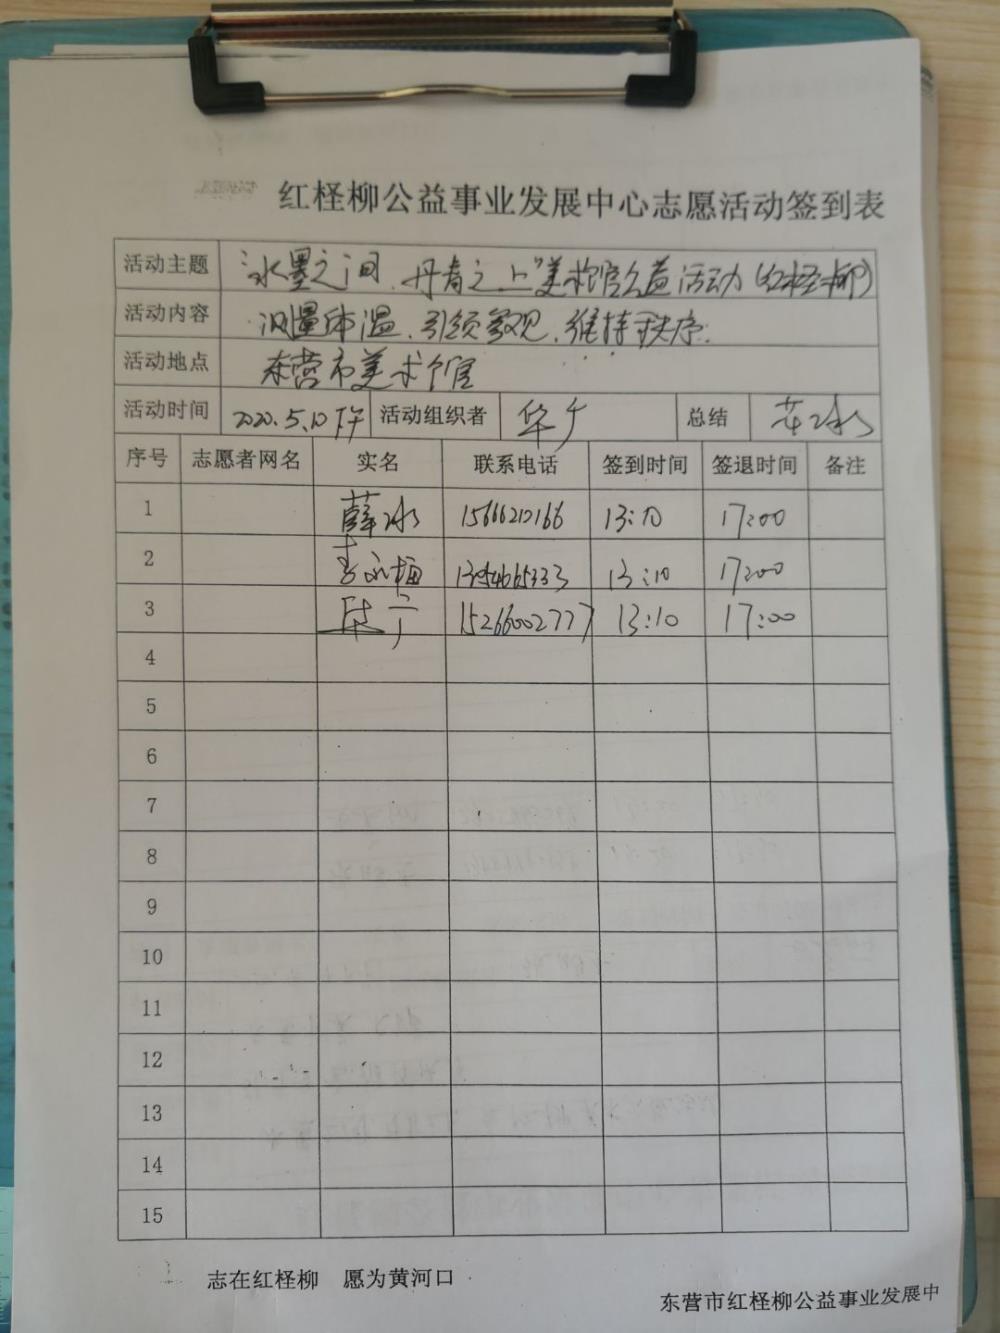 红柽柳公益事业发展中心志愿活动签到表
活动主题 "水墨之间、丹青之上"美术馆公益活动(红柽柳)
活动内容 测量体温、引领参观、维持秩序.
活动地点 东营市美术馆
活动时间 2020.5.10下午 活动组织者 华广 总结 薛冰
序号 志愿者网名 实名 联系电话 签到时间 签退时间 备注
1 薛冰 15666212166 13:10 17:00
2 李永福 13:10 17:00
3 15266002777 13:10 17:00
4
5
6
7
8
9
10
11
12
13
14
15
志在红柽柳 愿为黄河口
东营市红柽柳公益事业发展中